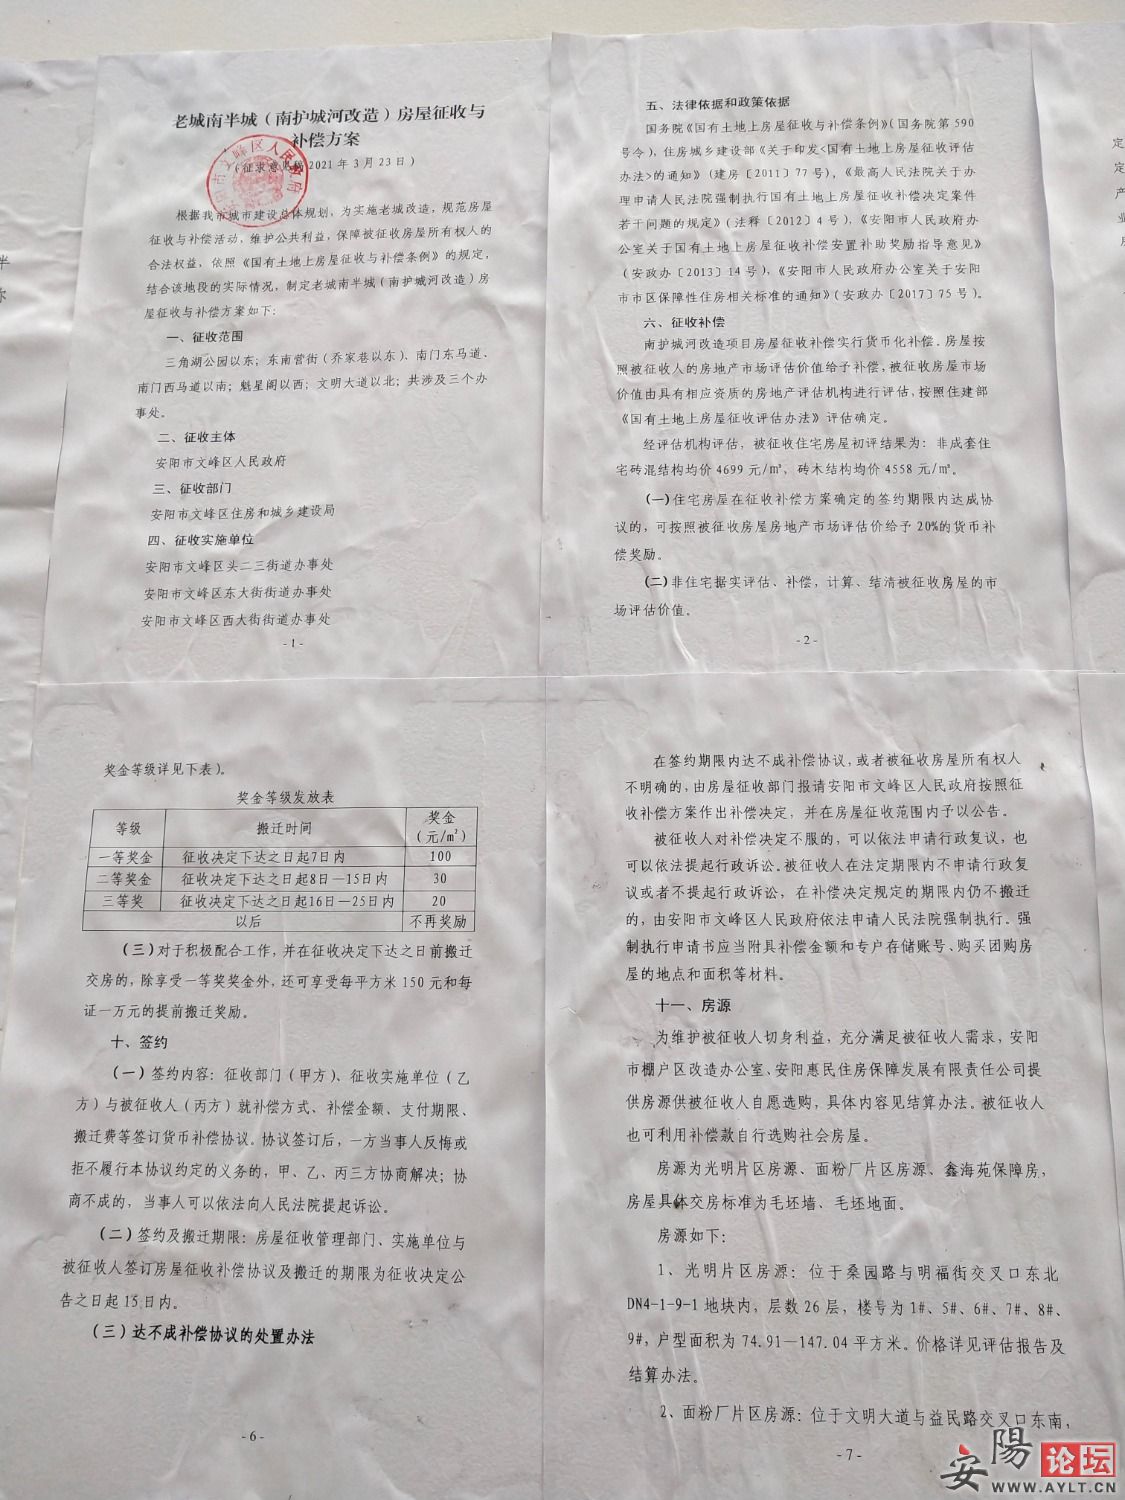 老城南半城（南护城河改造）房屋征收与
补偿方案
（征求意见稿2021年3月23日）
根据我市城市建设总体规划，为实施老城改造，规范房屋
征收与补偿活动，维护公共利益，保障被征收房屋所有权人的
合法权益，依照《国有土地上房屋征收与补偿条例》的规定，
结合该地段的实际情况，制定老城南半城（南护城河改造）房
屋征收与补偿方案如下：
一、征收范围
三角湖公园以东；东南营街（乔家巷以东）、南门东马道、
南门西马道以南；魁星阁以西；文明大道以北；共涉及三个办
事处。
二、征收主体
安阳市文峰区人民政府
三、征收部门
安阳市文峰区住房和城乡建设局
四、征收实施单位
安阳市文峰区头二三街道办事处
安阳市文峰区东大街街道办事处
安阳市文峰区西大街街道办事处
- 1 -
五、法律依据和政策依据
国务院《国有土地上房屋征收与补偿条例》（国务院第590
号令），住房城乡建设部《关于印发<国有土地上房屋征收评估
办法>的通知》（建房〔2011〕77号），《最高人民法院关于办
理申请人民法院强制执行国有土地上房屋征收补偿决定案件
若干问题的规定》（法释〔2012〕4号），《安阳市人民政府办
公室关于国有土地上房屋征收补偿安置补助奖励指导意见》
（安政办〔2013〕14号），《安阳市人民政府办公室关于安阳
市市区保障性住房相关标准的通知》（安政办〔2017〕75号）。
六、征收补偿
南护城河改造项目房屋征收补偿实行货币化补偿。房屋按
照被征收人的房地产市场评估价值给予补偿，被征收房屋市场
价值由具有相应资质的房地产评估机构进行评估，按照住建部
《国有土地上房屋征收评估办法》评估确定。
经评估机构评估，被征收住宅房屋初评结果为：非成套住
宅砖混结构均价4699元/㎡，砖木结构均价4558元/㎡。
（一）住宅房屋在征收补偿方案确定的签约期限内达成协
议的，可按照被征收房屋房地产市场评估价给予20%的货币补
偿奖励。
（二）非住宅据实评估、补偿，计算、结清被征收房屋的市
场评估价值。
- 2 -
奖金等级详见下表）。
奖金等级发放表
等级 搬迁时间 奖金（元/㎡）
一等奖金 征收决定下达之日起7日内 100
二等奖金 征收决定下达之日起8日—15日内 30
三等奖 征收决定下达之日起16日—25日内 20
以后 不再奖励
（三）对于积极配合工作，并在征收决定下达之日前搬迁
交房的，除享受一等奖奖金外，还可享受每平方米150元和每
证一万元的提前搬迁奖励。
十、签约
（一）签约内容：征收部门（甲方）、征收实施单位（乙
方）与被征收人（丙方）就补偿方式、补偿金额、支付期限、
搬迁费等签订货币补偿协议。协议签订后，一方当事人反悔或
拒不履行本协议约定的义务的，甲、乙、丙三方协商解决；协
商不成的，当事人可以依法向人民法院提起诉讼。
（二）签约及搬迁期限：房屋征收管理部门、实施单位与
被征收人签订房屋征收补偿协议及搬迁的期限为征收决定公
告之日起15日内。
（三）达不成补偿协议的处置办法
- 6 -
在签约期限内达不成补偿协议，或者被征收房屋所有权人
不明确的，由房屋征收部门报请安阳市文峰区人民政府按照征
收补偿方案作出补偿决定，并在房屋征收范围内予以公告。
被征收人对补偿决定不服的，可以依法申请行政复议，也
可以依法提起行政诉讼。被征收人在法定期限内不申请行政复
议或者不提起行政诉讼，在补偿决定规定的期限内仍不搬迁
的，由安阳市文峰区人民政府依法申请人民法院强制执行。强
制执行申请书应当附具补偿金额和专户存储账号、购买团购房
屋的地点和面积等材料。
十一、房源
为维护被征收人切身利益，充分满足被征收人需求，安阳
市棚户区改造办公室、安阳惠民住房保障发展有限责任公司提
供房源供被征收人自愿选购，具体内容见结算办法。被征收人
也可利用补偿款自行选购社会房屋。
房源为光明片区房源、面粉厂片区房源、鑫海苑保障房，
房屋具体交房标准为毛坯墙、毛坯地面。
房源如下：
1、光明片区房源：位于桑园路与明福街交叉口东北
DN4-1-9-1地块内，层数26层，楼号为1#、5#、6#、7#、8#、
9#，户型面积为74.91—147.04平方米。价格详见评估报告及
结算办法。
2、面粉厂片区房源：位于文明大道与益民路交叉口东南，
- 7 -
安陽论坛
WWW.AYLT.CN